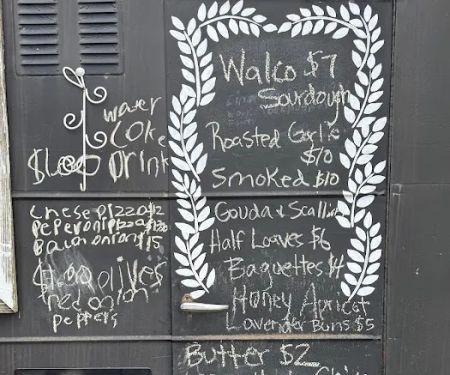 water
coke
$1.00 Drink
chese pizza $12
peperoni pizza $13.50
Bacon onion $15
$1.00 olives
red onion
peppers
Walco $7
Sourdough
Roasted Garlic
$10
Smoked $10
Gouda & Scallion
Half Loaves $6
Baguettes $4
Honey Apricot
Lavender Buns $5
Butter $2